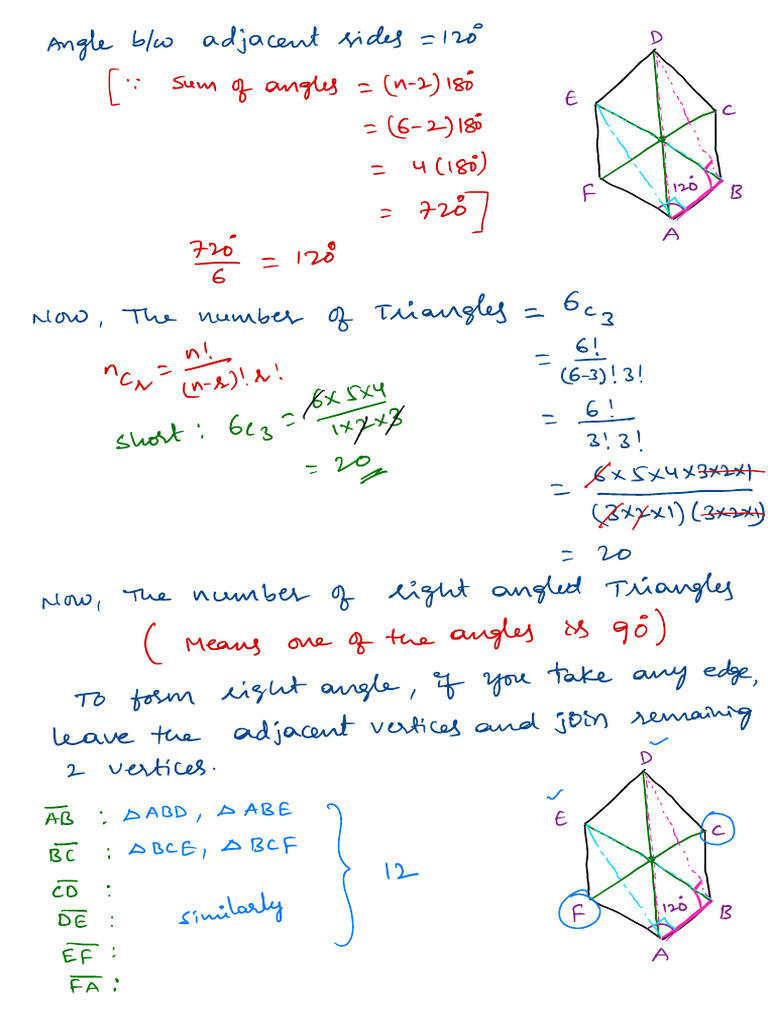 Angle b/w adjacent sides = 120°
[∵ Sum of angles = (n-2)180°
= (6-2)180°
= 4(180°)
= 720°]
720°/6 = 120°
D
E
C
F
120°
B
A
Now, The number of Triangles = 6C3
nCr = n!/(n-r)!r!
= 6!/(6-3)!3!
short: 6C3 = 6×5×4/1×2×3
= 20
= 6!/3!3!
= 6×5×4×3×2×1/(3×2×1)(3×2×1)
= 20
Now, The number of right angled Triangles
(Means one of the angles is 90°)
To form right angle, if you take any edge,
leave the adjacent vertices and join remaining
2 vertices.
AB : △ABD, △ABE
BC : △BCE, △BCF
CD :
DE : similarly
EF :
FA :
12
D
E
C
F
120°
B
A